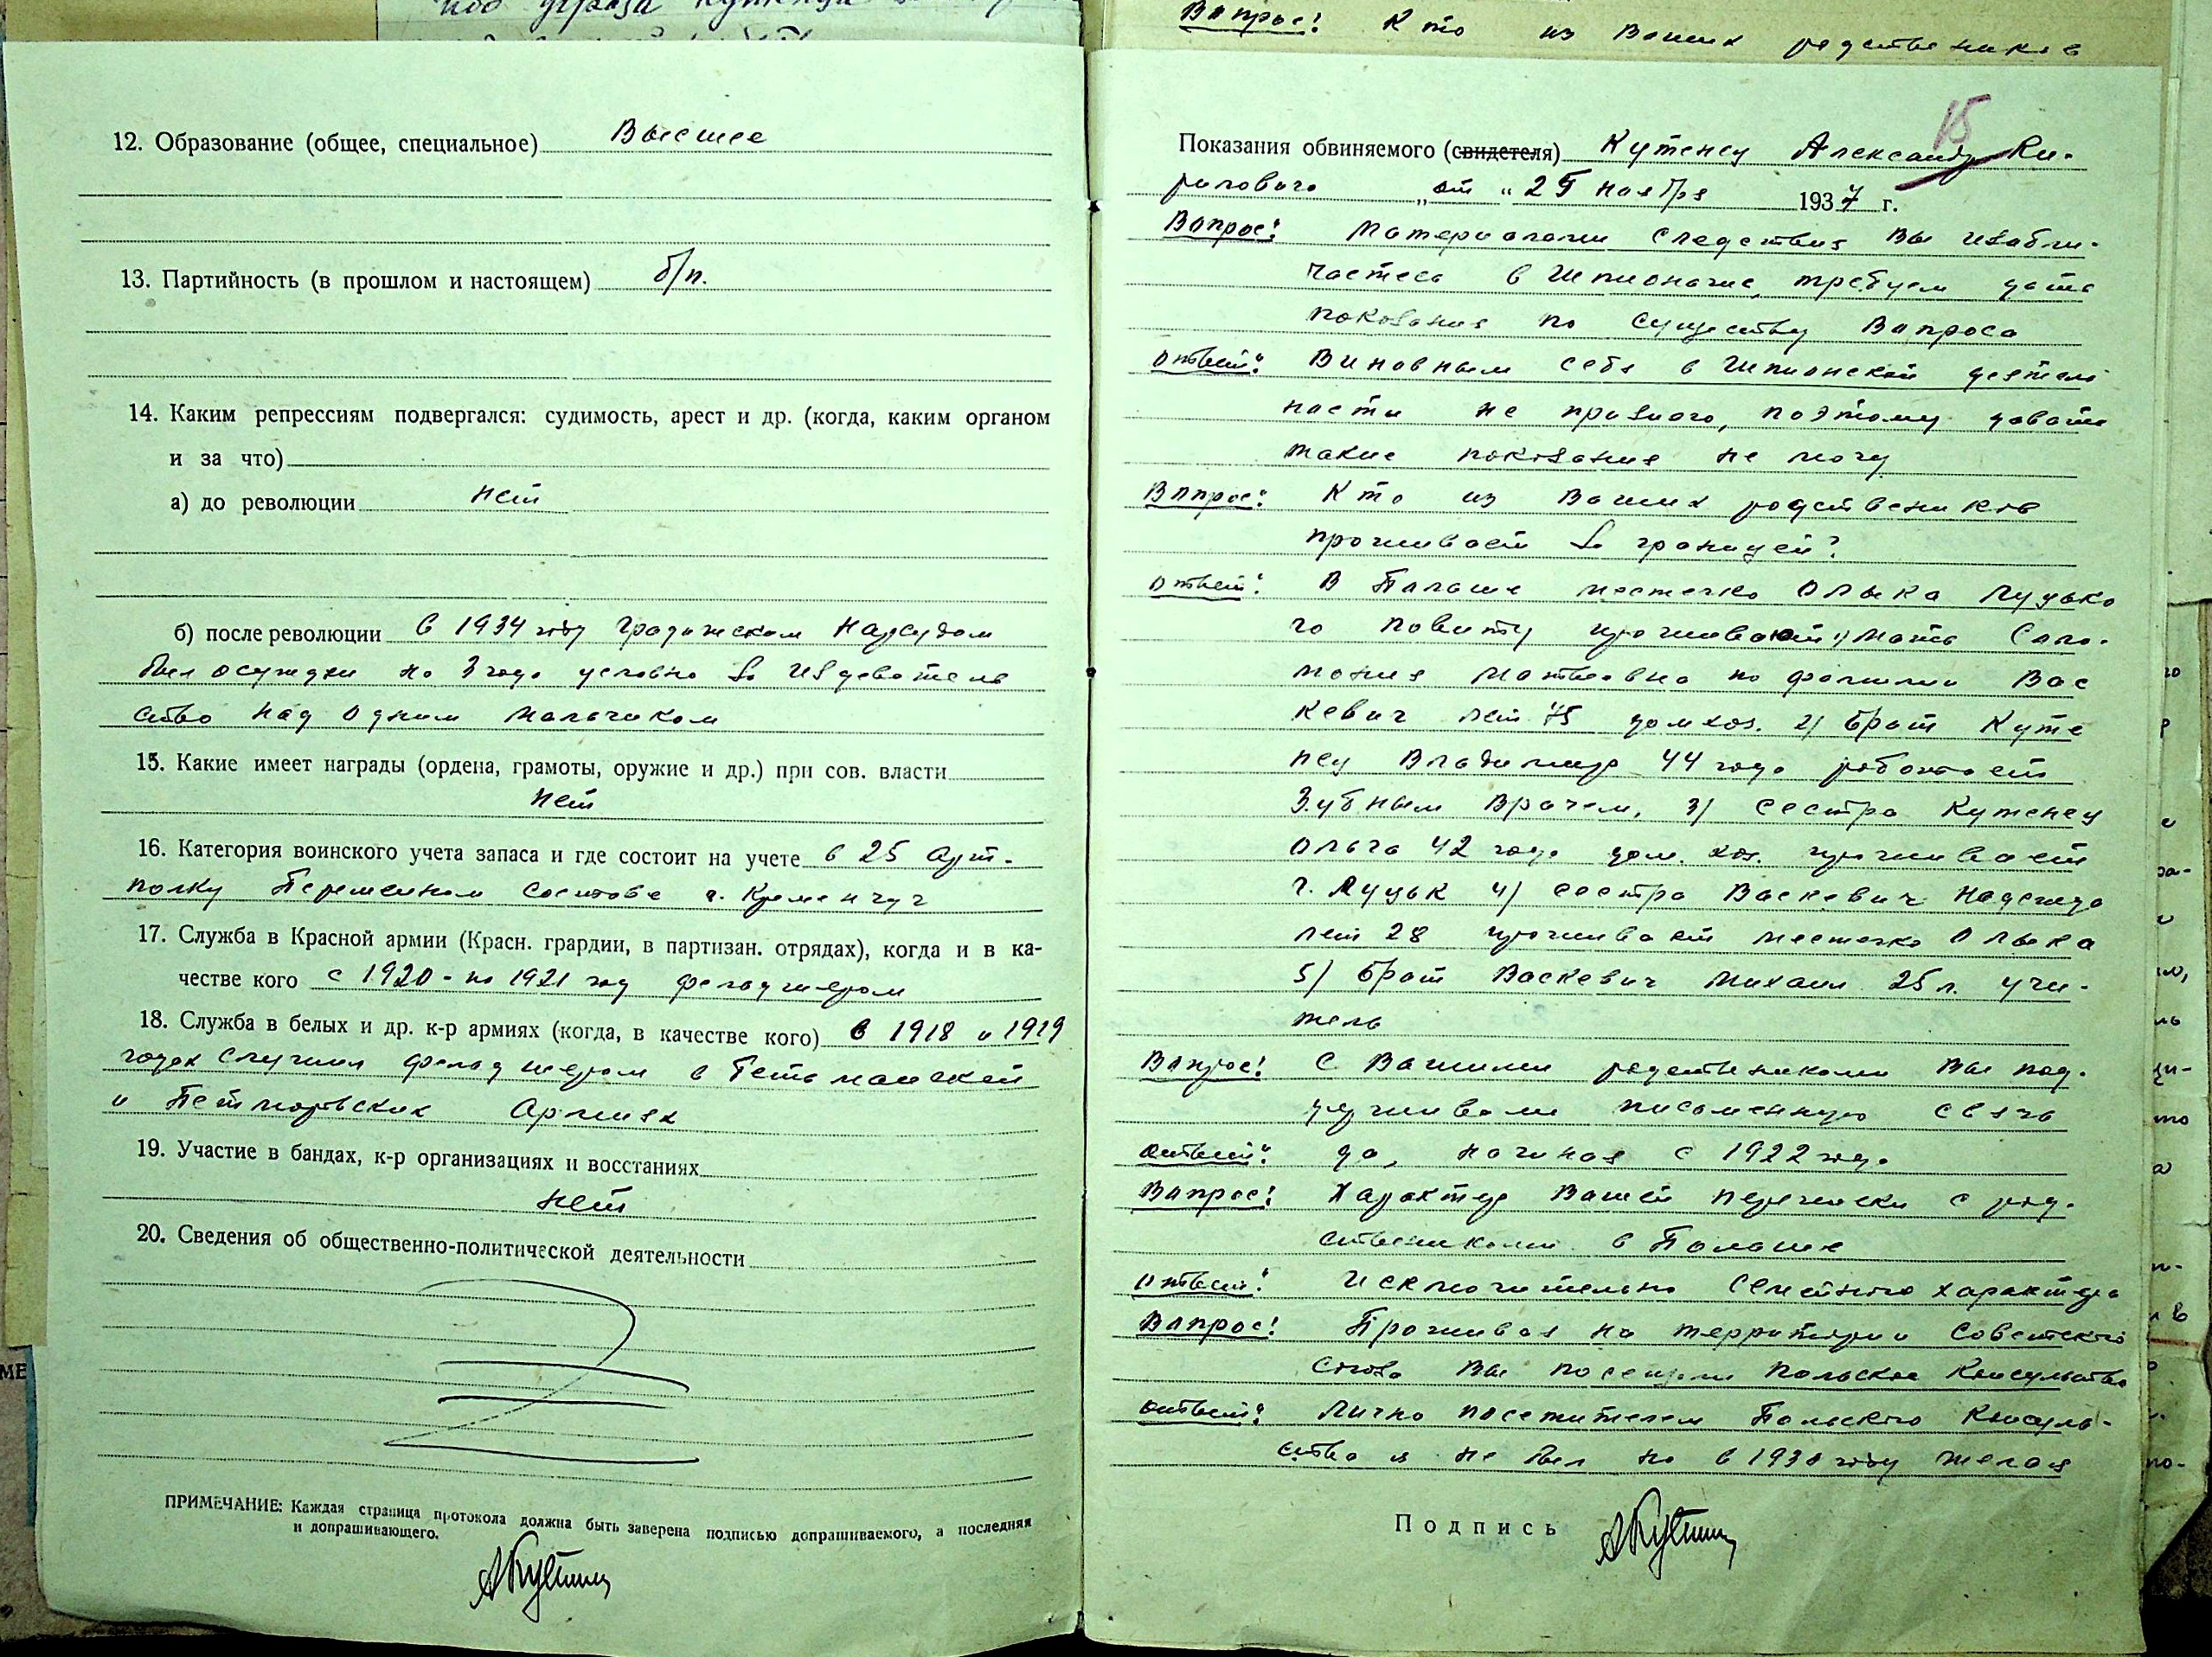 Вопрос! Кто из Ваших родствеников
12. Образование (общее, специальное) Высшее
13. Партийность (в прошлом и настоящем) б/п.
14. Каким репрессиям подвергался: судимость, арест и др. (когда, каким органом
и за что)
а) до революции нет
б) после революции в 1934 году Градижском Нарсудом
был осужден на 3 года условно за издеватель
ство над одним мальчиком
15. Какие имеет награды (ордена, грамоты, оружие и др.) при сов. власти
нет
16. Категория воинского учета запаса и где состоит на учете в 25 арт.
полку Переменном составе г. Кременчуг
17. Служба в Красной армии (Красн. грардии, в партизан. отрядах), когда и в ка-
честве кого с 1920 - по 1921 год фельдшером
18. Служба в белых и др. к-р армиях (когда, в качестве кого) в 1918 и 1919
годах служил фельдшером в Гетманской
и Петлюровских Армиях
19. Участие в бандах, к-р организациях и восстаниях
нет
20. Сведения об общественно-политической деятельности
ПРИМЕЧАНИЕ: Каждая страница протокола должна быть заверена подписью допрашиваемого, а последняя
и допрашивающего.
15
Показания обвиняемого (свидетеля) Кутенец Александр Ки-
рилович „ от „ 25 ноября 1937 г.
Вопрос: Материалами следствия Вы изобли-
чаетесь в шпионаже, требуем дать
показания по существу вопроса
Ответ: Виновным себя в шпионской деятель
ности не признаю, поэтому давать
такие показания не могу
Вопрос: Кто из Ваших родствеников
проживает за границей?
Ответ: В Польше местечко Олыка Луцько
го повиту проживают 1) мать Соло-
мония Матвеевна по фамилии Вас
кевич лет 75 домхоз. 2) брат Куте
нец Владимир 44 года работает
Зубным врачем, 3) сестра Кутенец
Ольга 42 года дом. хоз. проживает
г. Луцьк 4) сестра Васкевич Надежда
лет 28 проживает местечко Олыка
5) брат Васкевич Михаил 25 л. учи-
тель
Вопрос! С Вашими родствениками Вы под-
держивали письменную связь
Ответ: да, начиная с 1922 года
Вопрос! Характер Вашей переписки с род-
ствениками в Польше
Ответ: Исключительно семейного характера
Вопрос! Проживая на территории Советского
союза Вы посещали Польское Консульство
Ответ: Лично посетителем Польского Консуль-
ства я не был но в 1930 году желая
Подпись